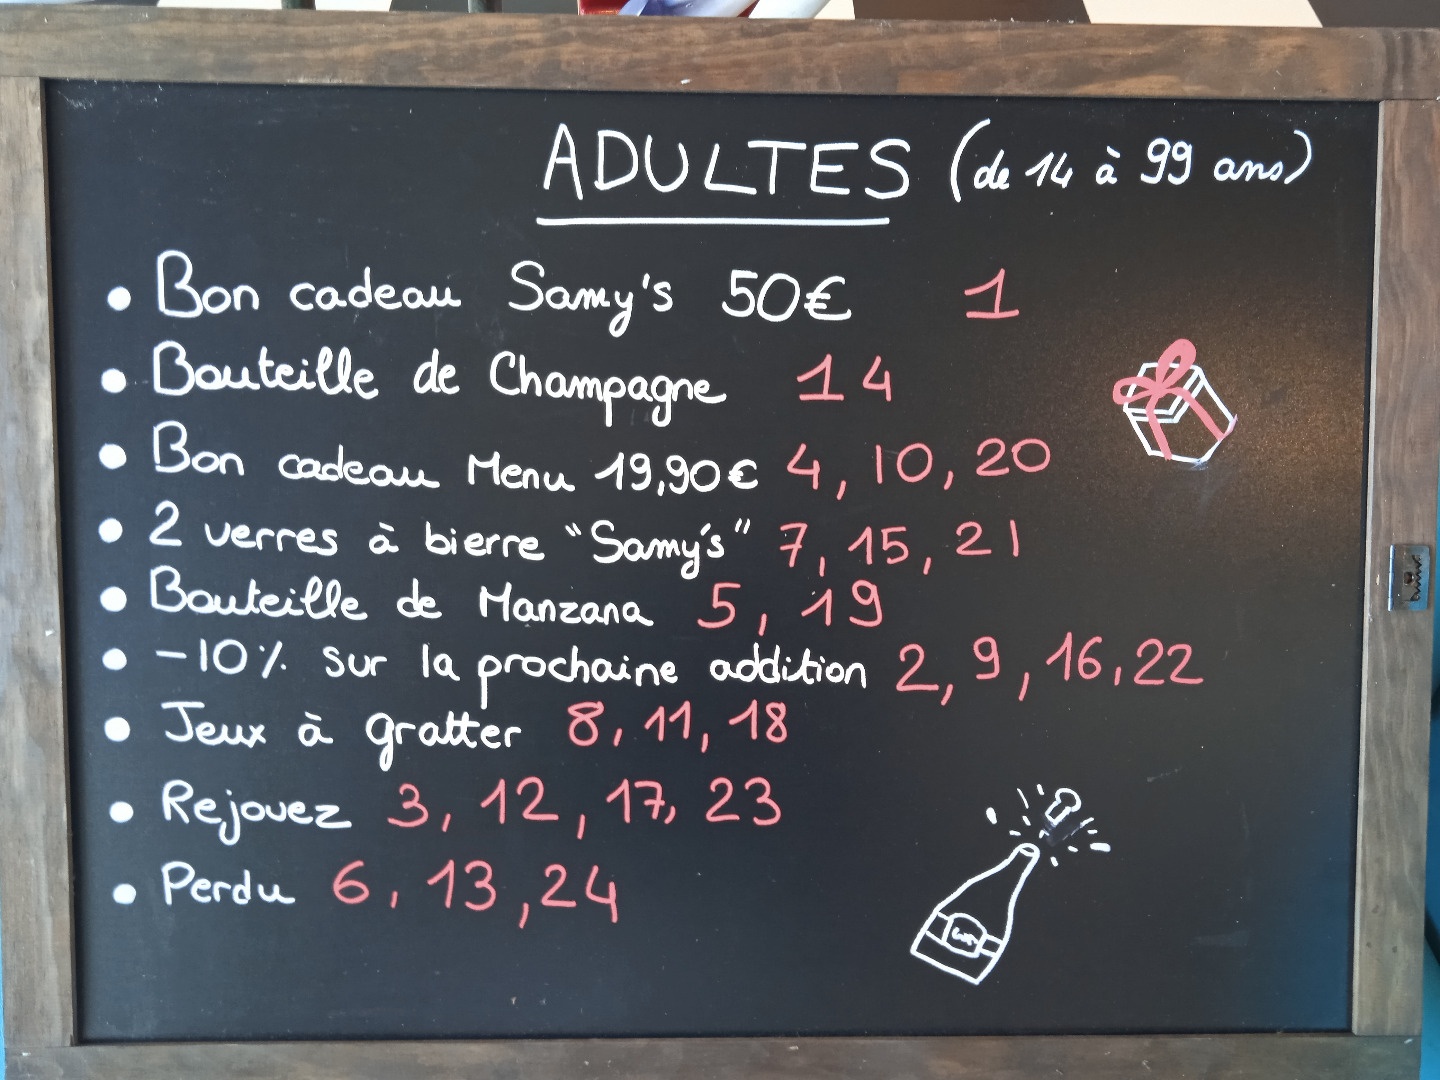 ADULTES (de 14 à 99 ans)
• Bon cadeau Samy's 50€ 1
• Bouteille de Champagne 14
• Bon cadeau Menu 19,90€ 4, 10, 20
• 2 verres à bierre "Samy's" 7, 15, 21
• Bouteille de Manzana 5, 19
• -10% sur la prochaine addition 2, 9, 16, 22
• Jeux à gratter 8, 11, 18
• Rejouez 3, 12, 17, 23
• Perdu 6, 13, 24